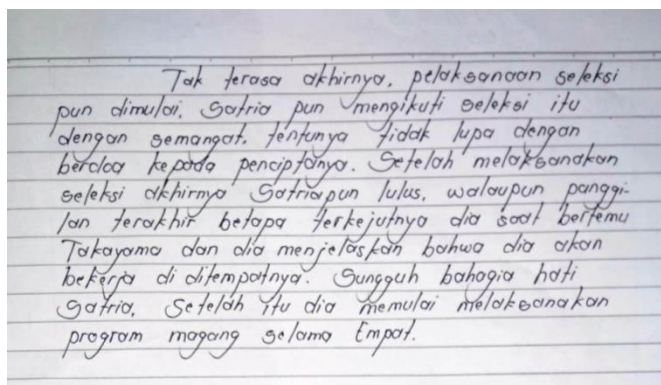 Tak terasa akhirnya, pelaksanaan seleksi
pun dimulai. Satria pun mengikuti seleksi itu
dengan semangat. tentunya tidak lupa dengan
berdoa kepada penciptanya. Setelah melaksanakan
seleksi akhirnya Satria pun lulus, walaupun panggi-
lan terakhir betapa terkejutnya dia saat bertemu
Takayama dan dia menjelaskan bahwa dia akan
bekerja di ditempatnya. Sungguh bahagia hati
Satria. Setelah itu dia memulai melaksanakan
program magang selama Empat.